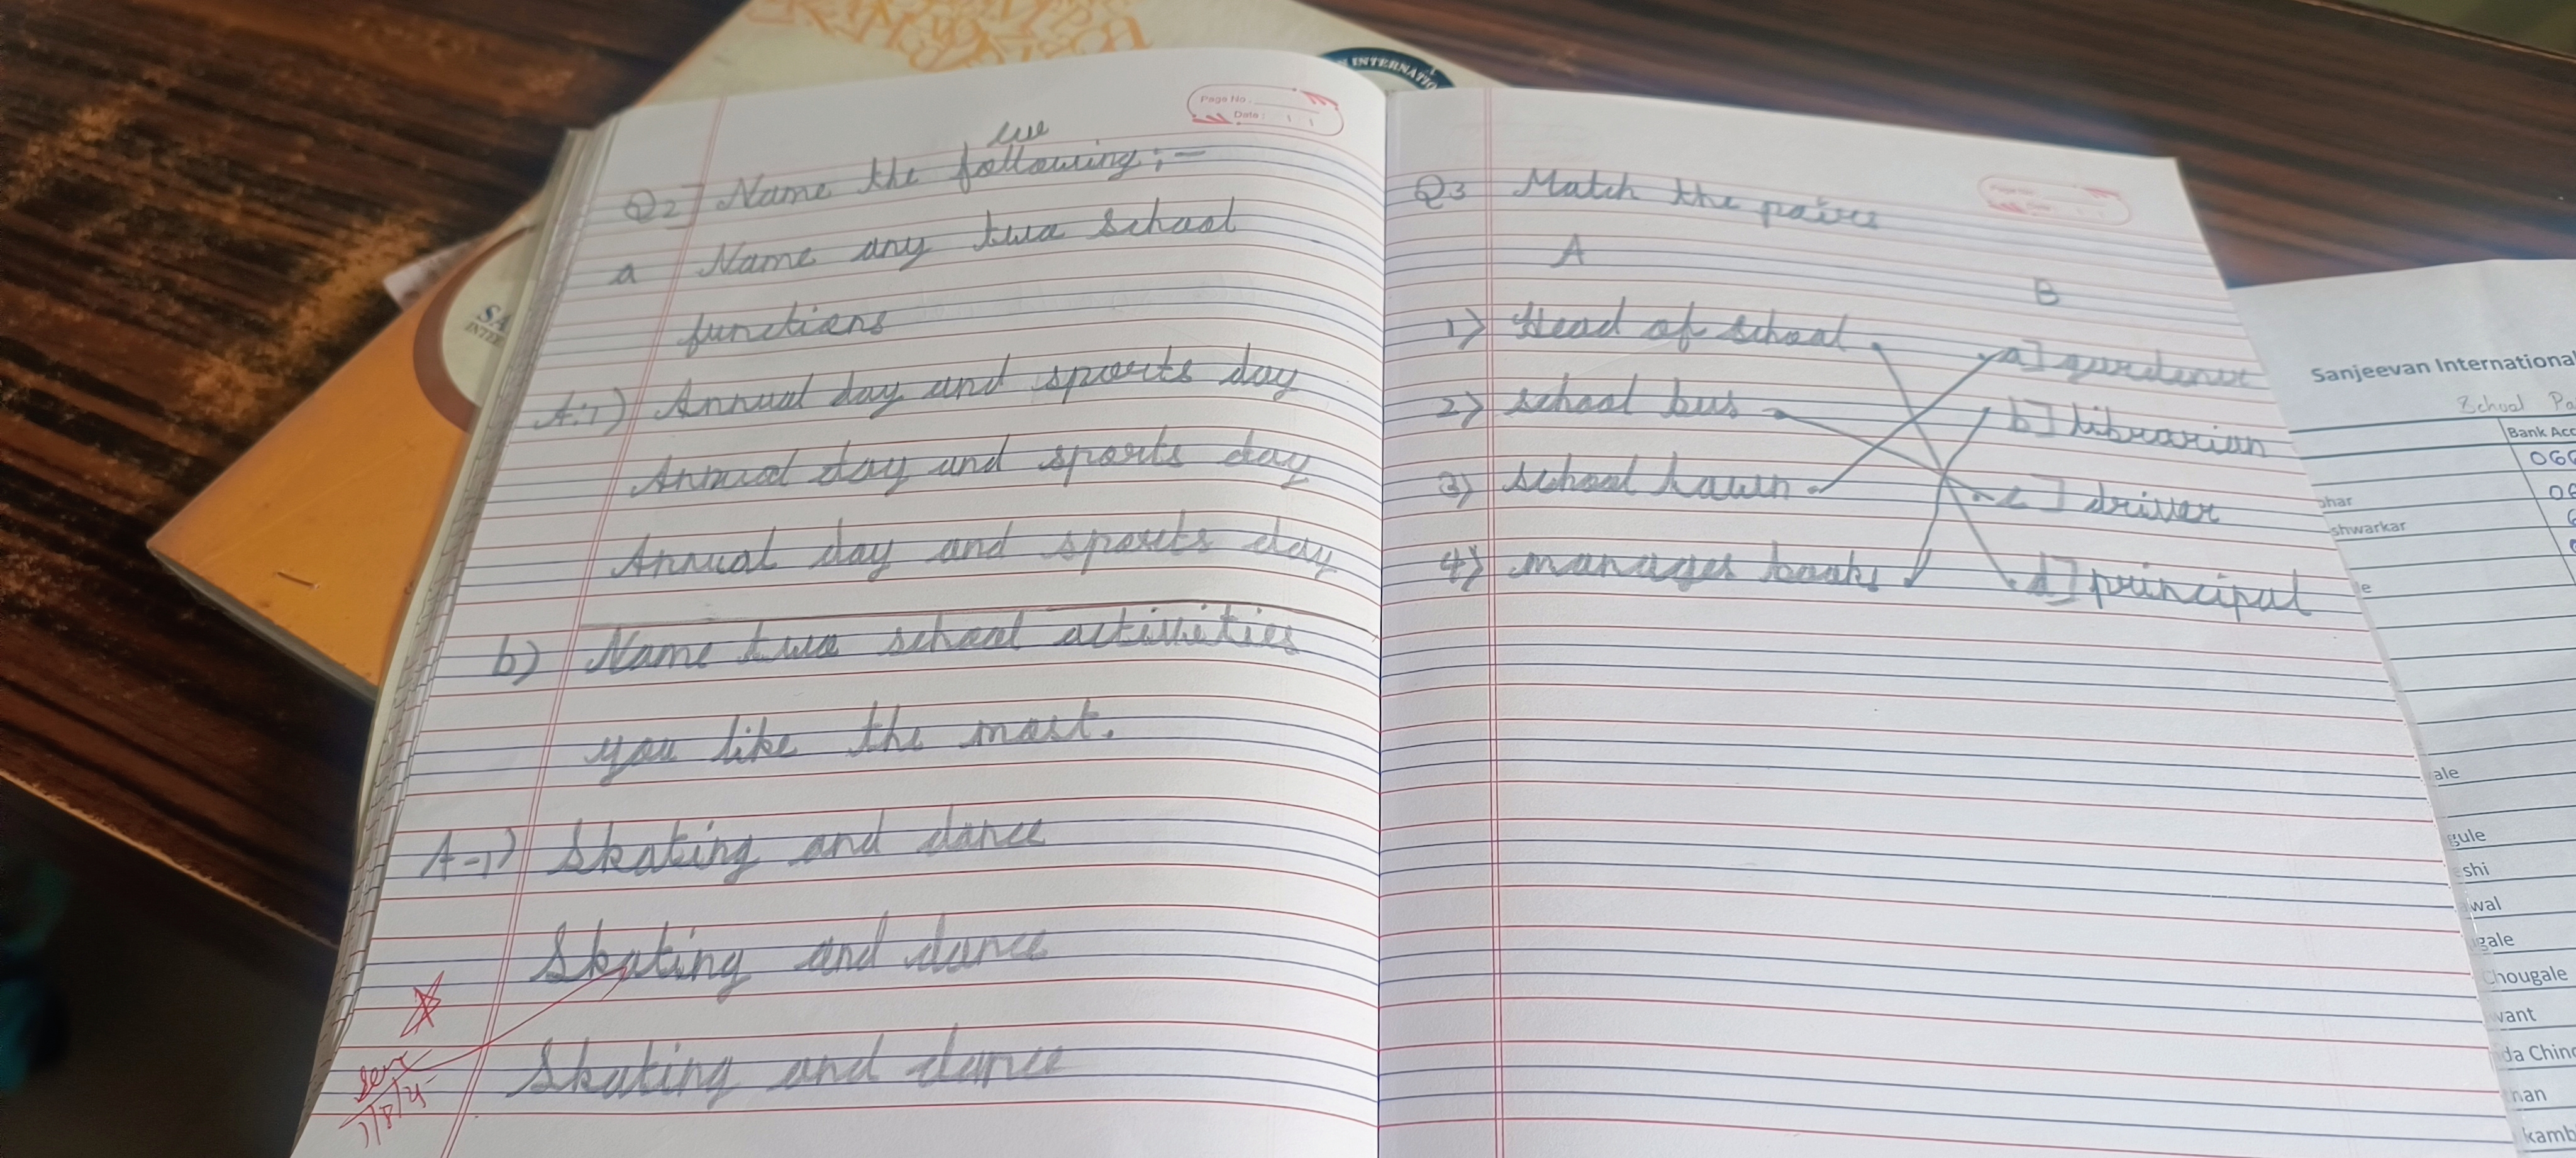 Page No.
Date:
CW
Q2] Name the following:-
a Name any two school
functions
A:1) Annual day and sports day
Annual day and sports day
Annual day and sports day
b) Name two school activities
you like the most.
A-1) Skating and dance
Skating and dance
Skating and dance
Q3 Match the pairs
A
B
1) Head of school
a] gardener
2) school bus
b] librarian
3) school lawn
c] driver
4) manages books
d] principal
INTERNATIO
SA
INTE
Sanjeevan International
School Pa
Bank Acc
shwarkar
ale
gule
shi
wal
gale
Chougale
want
da Chin
nan
kamb